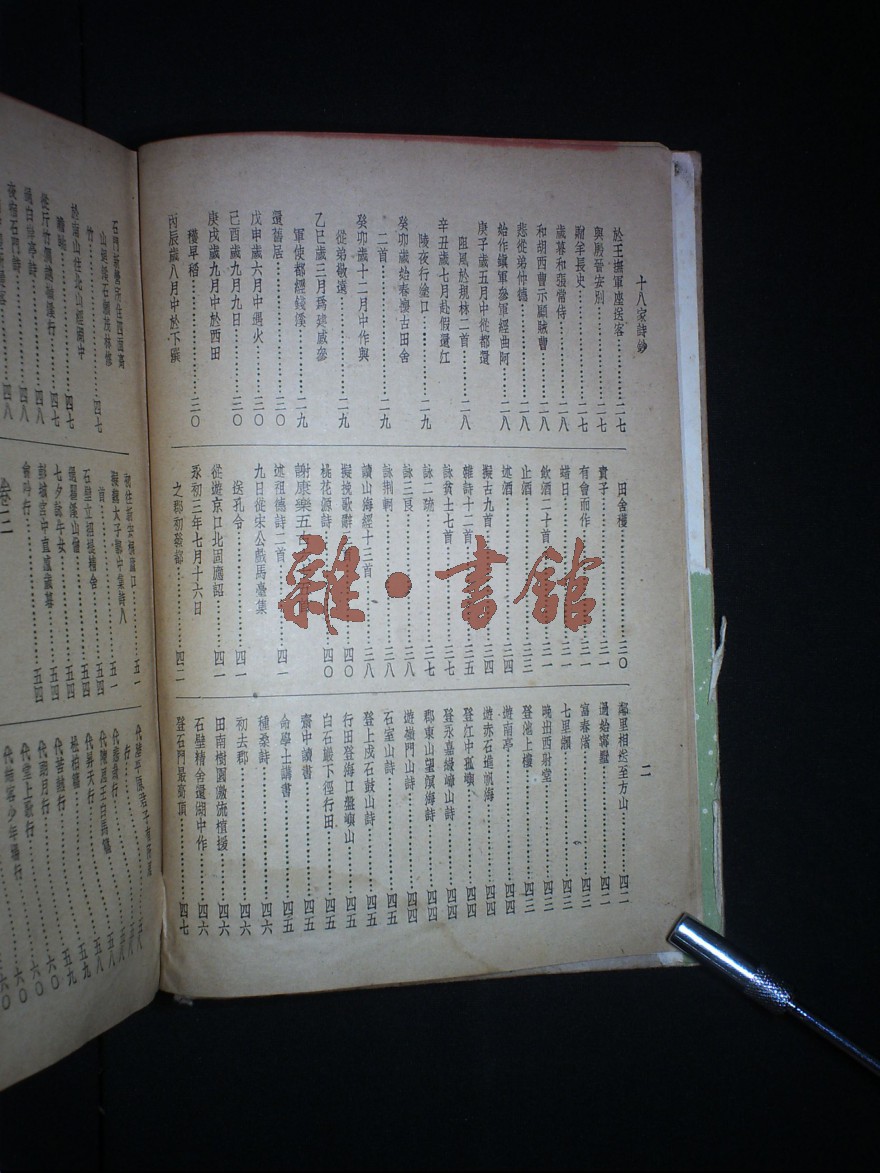 十八家詩鈔
二
於王撫軍座送客……二七
與殷晉安別……二七
贈羊長史……二八
歲暮和張常侍……二八
和胡西曹示顧賊曹……二八
悲從弟仲德……二八
始作鎮軍參軍經曲阿……二八
庚子歲五月中從都還
阻風於規林二首……二八
辛丑歲七月赴假還江
陵夜行塗口……二九
癸卯歲始春懷古田舍
二首……二九
癸卯歲十二月中作與
從弟敬遠……二九
乙巳歲三月爲建威參
軍使都經錢溪……二九
還舊居……三〇
戊申歲六月中遇火……三〇
己酉歲九月九日……三〇
庚戌歲九月中於西田
穫早稻……三〇
丙辰歲八月中於下潠
田舍穫……三〇
責子……三一
有會而作……三一
蜡日……三一
飲酒二十首……三一
止酒……三三
述酒……三四
擬古九首……三四
雜詩十二首
詠貧士七首……三七
詠二疏……三七
詠三良……三八
詠荊軻……三八
讀山海經十三首……三八
擬挽歌辭……四〇
桃花源詩……四〇
謝康樂五古
述祖德詩二首……四一
九日從宋公戲馬臺集
送孔令……四一
從遊京口北固應詔……四一
永初三年七月十六日
之郡初發都……四二
鄰里相送至方山……四二
過始寧墅……四二
富春渚……四二
七里瀨……四三
晚出西射堂……四三
登池上樓……四三
遊南亭……四四
遊赤石進帆海……四四
登江中孤嶼……四四
登永嘉綠嶂山詩……四四
郡東山望溟海詩……四四
遊嶺門山詩……四四
石室山詩……四五
登上戍石鼓山詩……四五
行田登海口盤嶼山……四五
白石巖下徑行田……四五
齋中讀書……四五
命學士講書……四五
種桑詩……四六
初去郡……四六
田南樹園激流植援……四六
石壁精舍還湖中作……四六
登石門最高頂……四七
石門新營所住四面高
山迴溪石瀨茂林修
竹……四七
於南山往北山經湖中
瞻眺……四七
從斤竹澗越嶺溪行……四七
過白岸亭詩……四八
夜宿石門詩……四八
初往新安桐廬口……五一
擬魏太子鄴中集詩八
首……五一
石壁立招提精舍……五四
七夕詠牛女……五四
彭城宮中直感歲暮……五四
會吟行……五四
卷三
代昇天行
代堂上歌行
雜·書館